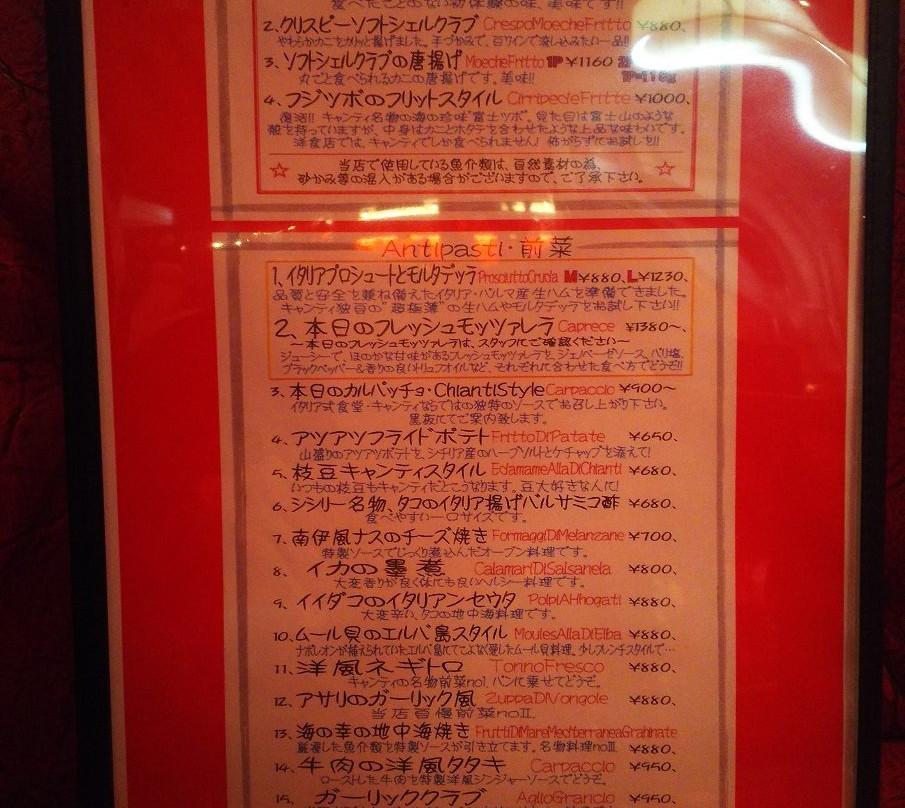 食べたことのない初体験の味、美味です!!
2.クリスピーソフトシェルクラブ CrespoMoecheFritto ¥880、
やわらかカニをカリッと揚げました。手づかみで、白ワインで楽しみたい一品!!
3.ソフトシェルクラブの唐揚げ MoecheFritto 1P ¥1160
丸ごと食べられるカニの唐揚げです。美味!!
4.フジツボのフリットスタイル CirripedeFritte ¥1000、
復活!! キャンティ名物の海の珍味"富士ツボ"。見た目は富士山のような
殻を持っていますが、中身はカニとホタテを合わせたような上品な味わいです。
洋食店では、キャンティでしか食べられません! 怖がらずにお試しを!!
☆ 当店で使用している魚介類は、自然素材の為、 ☆
砂かみ等の混入がある場合がございますので、ご了承下さい。
Antipasti・前菜
1.イタリアプロシュートとモルタデッラ ProsciuttoCruda M¥880、L¥1230、
品質と安全を兼ね備えたイタリア・パルマ産生ハムを準備できました。
キャンティ独自の"超極薄"の生ハムやモルタデッラをお試し下さい!!
2.本日のフレッシュモッツァレラ Caprece ¥1380〜、
〜本日のフレッシュモッツァレラは、スタッフにご確認ください〜
ジューシーで、ほのかな甘味があるフレッシュモッツァレラを、ジェノベーゼソース、バリ塩、
ブラックペッパー&香りの良いトリュフオイルなど、それぞれに合わせた食べ方でどうぞ!!
3.本日のカルパッチョ・ChiantiStyle Carpaccio ¥900〜
イタリア式食堂・キャンティならではの独特のソースでお召し上がり下さい。
黒板にてご案内致します。
4.アツアツフライドポテト FrittoDiPatate ¥650、
山盛りのアツアツポテトを、シチリア産のハーブソルトとケチャップを添えて!
5.枝豆キャンティスタイル EdamameAllaDiChianti ¥680、
いつもの枝豆もキャンティだとこうなります。豆大好きな人に!
6.シシリー名物、タコのイタリア揚げバルサミコ酢 ¥680、
食べやすい一口サイズです。
7.南伊風ナスのチーズ焼き FormaggiDiMelanzane ¥700、
特製ソースでじっくり煮込んだオーブン料理です。
8.イカの墨煮 CalamariDiSalsanela ¥800、
大変香りが良く体にも良いヘルシー料理です。
9.イイダコのイタリアンセウタ PolpiAffogati ¥880、
大変辛い、タコの地中海料理です。
10.ムール貝のエルバ島スタイル MoulesAllaDiElba ¥880、
ナポレオンが捕えられていたエルバ島にてこよなく愛したムール貝料理、少しフレンチスタイルで…
11.洋風ネギトロ TonnoFresco ¥880、
キャンティの名物前菜no1、パンに乗せてどうぞ。
12.アサリのガーリック風 ZuppaDiVongole ¥880、
当店自慢前菜noⅡ
13.海の幸の地中海焼き FruttiDiMareMediterraneaGratinate
厳選した魚介類を特製ソースが引き立てます。名物料理noⅢ ¥880、
14.牛肉の洋風タタキ Carpaccio ¥950、
ローストした牛肉を特製洋風ジンジャーソースでどうぞ
15.ガーリッククラブ AglioGrancio ¥950、